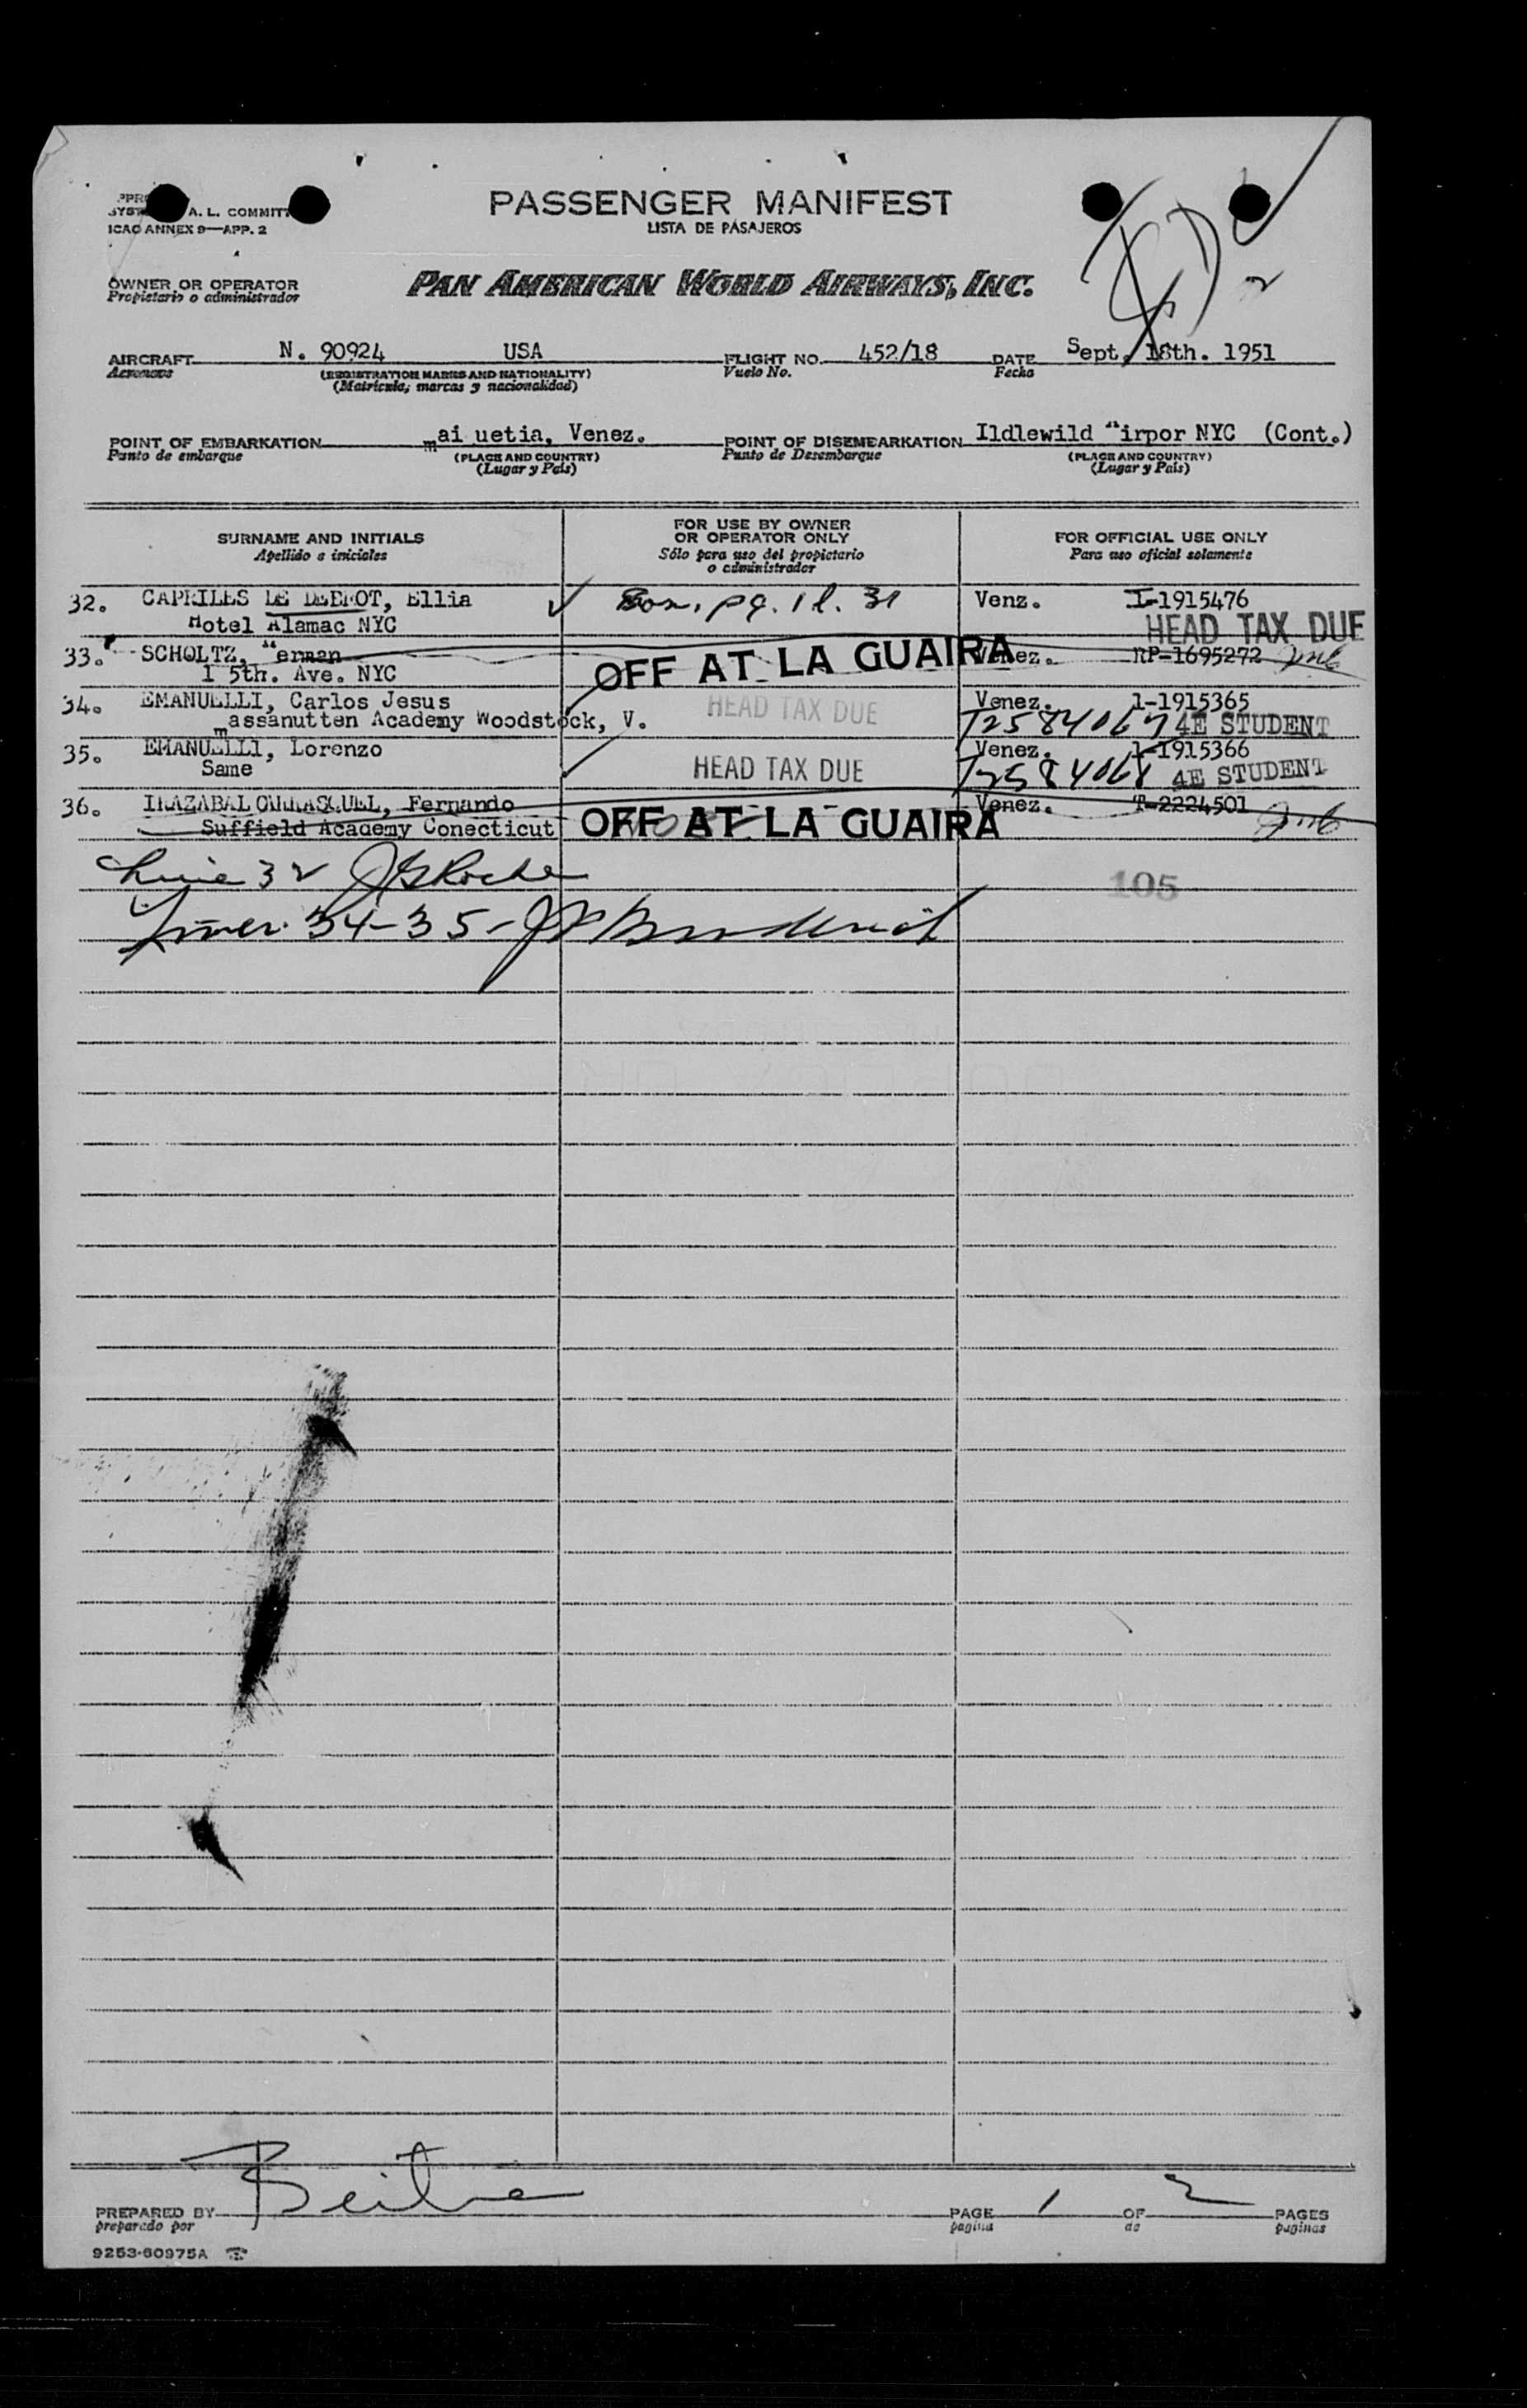 A. L. COMMIT
ICAO ANNEX 9—APP. 2
PASSENGER MANIFEST
LISTA DE PASAJEROS
OWNER OR OPERATOR
Propietario o administrador
PAN AMERICAN WORLD AIRWAYS, INC.
2
AIRCRAFT N. 90924 USA FLIGHT NO. 452/18 DATE Sept. 18th. 1951
Aeronave (REGISTRATION MARKS AND NATIONALITY) Vuelo No. Fecha
(Matrícula, marcas y nacionalidad)
POINT OF EMBARKATION mai uetia, Venez. POINT OF DISEMBARKATION Ildlewild "irpor NYC (Cont.)
Punto de embarque (PLACE AND COUNTRY) Punto de Desembarque (PLACE AND COUNTRY)
(Lugar y País) (Lugar y País)
SURNAME AND INITIALS
Apellido e iniciales
FOR USE BY OWNER
OR OPERATOR ONLY
Sólo para uso del propietario
o administrador
FOR OFFICIAL USE ONLY
Para uso oficial solamente
32. CAPRILES DE Ellia pg. 1 l. 31 Venz. I-1915476
Hotel Alamac NYC HEAD TAX DUE
33. SCHOLTZ, "erman OFF AT LA GUAIRA Venez. RP-1695272
1 5th. Ave. NYC
34. EMANUELLI, Carlos Jesus HEAD TAX DUE Venez. 1-1915365
massanutten Academy Woodstock, V. 4E STUDENT
35. EMANUELLI, Lorenzo Venez. 1-1915366
Same HEAD TAX DUE 4E STUDENT
36. IRAZABAL CARRASQUEL, Fernando OFF AT LA GUAIRA Venez. T-2224501
Suffield Academy Conecticut
Line 32
105
34-35-
PREPARED BY
preparado por
PAGE 1 OF 2 PAGES
pagina de paginas
9253-60975A